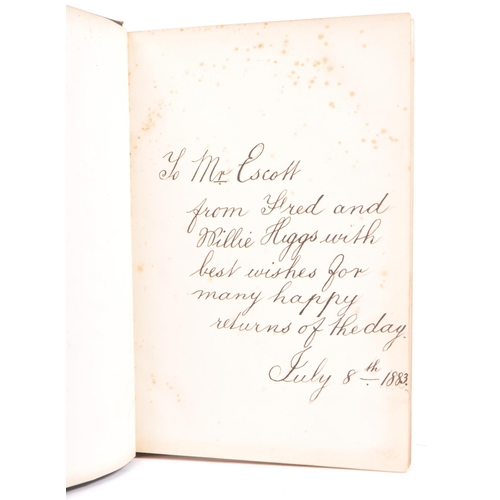 To Mr Escott
from Fred and
Willie Higgs with
best wishes for
many happy
returns of the day.
July 8th 1883.